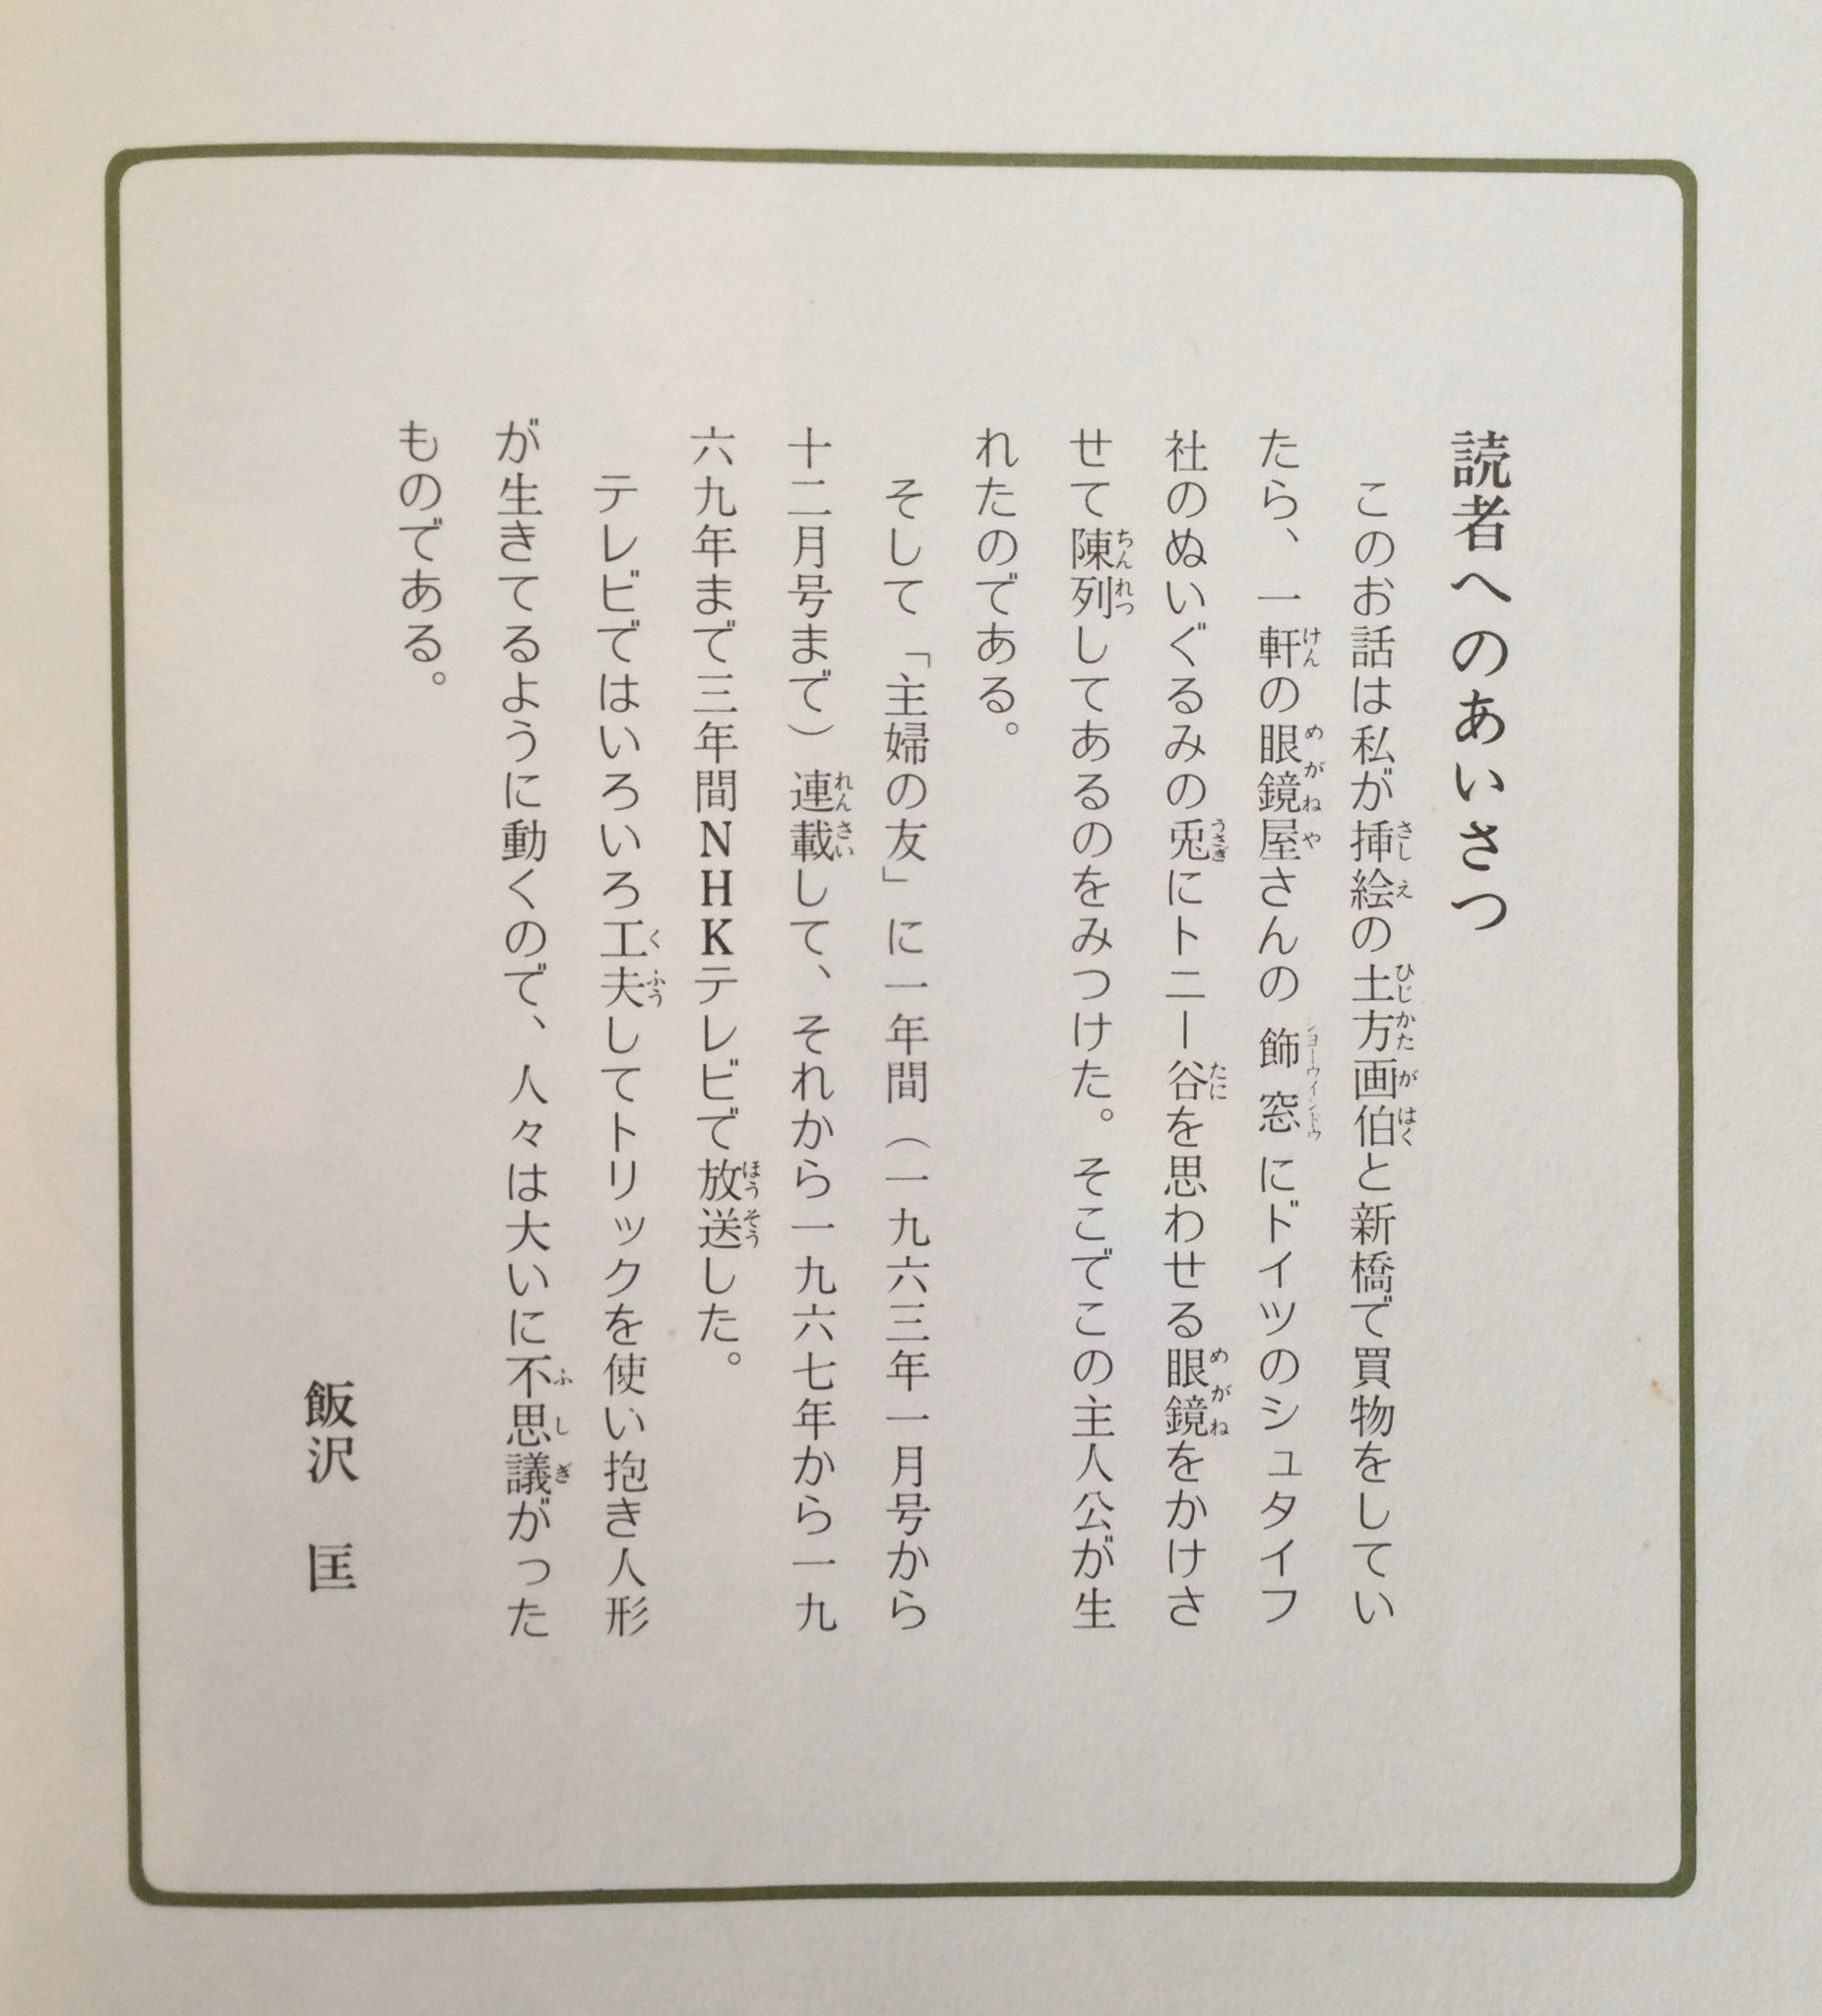 読者へのあいさつ
このお話は私が挿絵の土方画伯と新橋で買物をしてい
たら、一軒の眼鏡屋さんの飾窓にドイツのシュタイフ
社のぬいぐるみの兎にトニー谷を思わせる眼鏡をかけさ
せて陳列してあるのをみつけた。そこでこの主人公が生
れたのである。
そして「主婦の友」に一年間（一九六三年一月号から
十二月号まで）連載して、それから一九六七年から一九
六九年まで三年間NHKテレビで放送した。
テレビではいろいろ工夫してトリックを使い抱き人形
が生きてるように動くので、人々は大いに不思議がった
ものである。
飯沢　匡